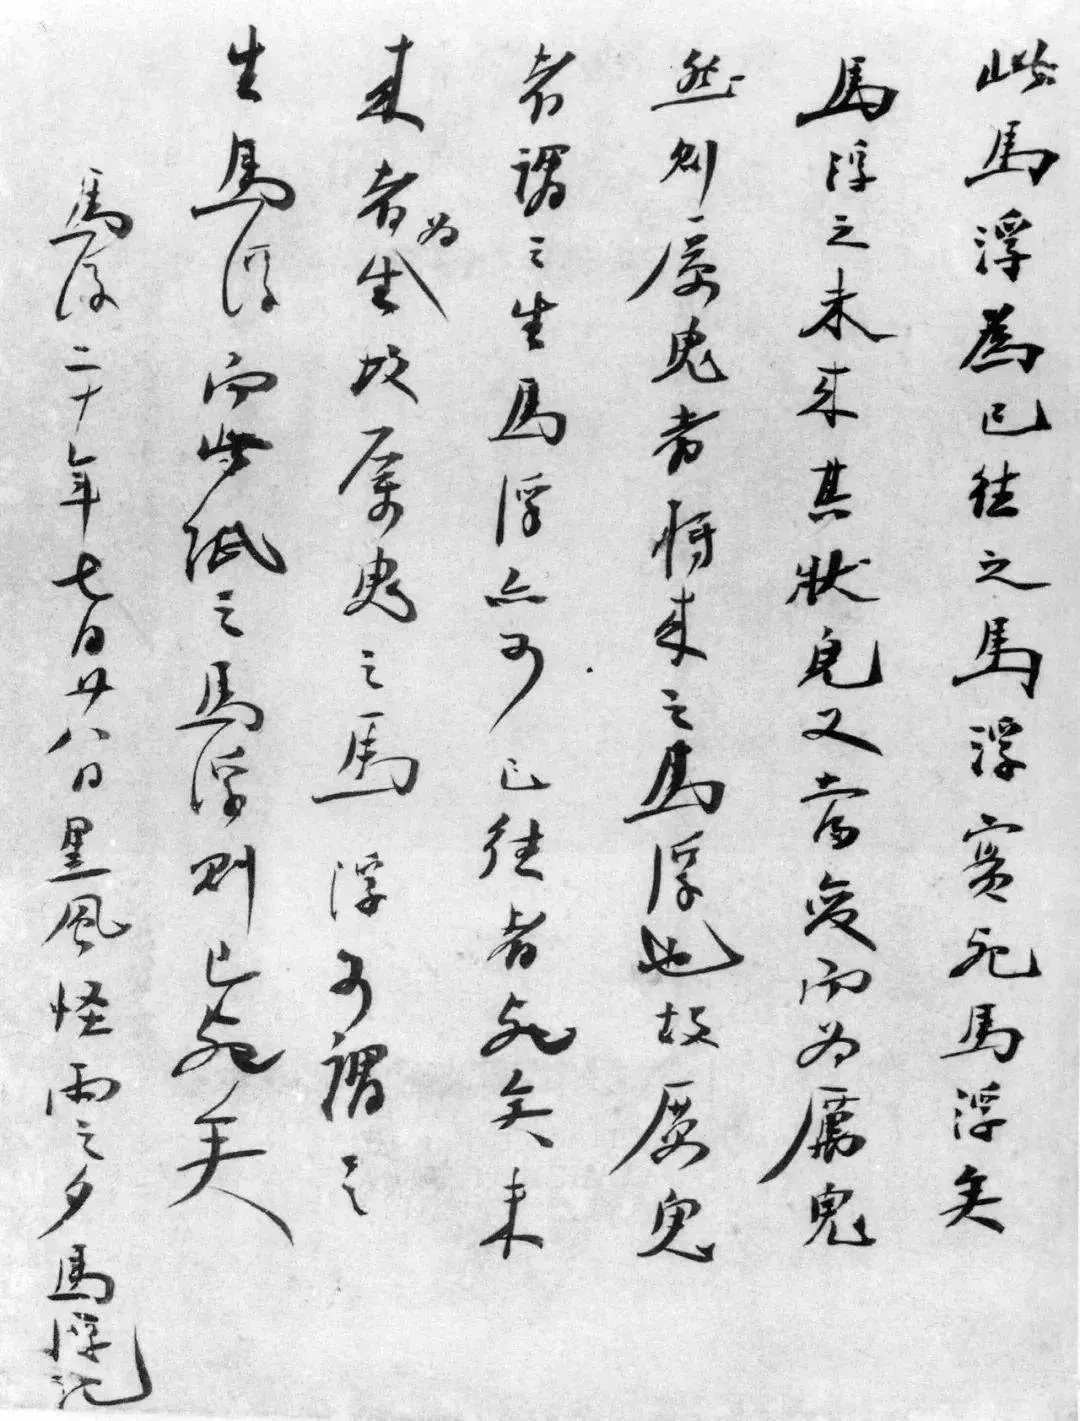 此馬浮為已往之馬浮實死馬浮矣
馬浮之未來其狀皃又當变而为厲鬼
然則厲鬼者将来之馬浮也故厲鬼
者謂之生馬浮亦可已往者死矣未
来者为生故厲鬼之馬浮可謂之
生馬浮而此纸之馬浮則已死矣
馬浮二十年七月廿八日黑風怪雨之夕馬浮記